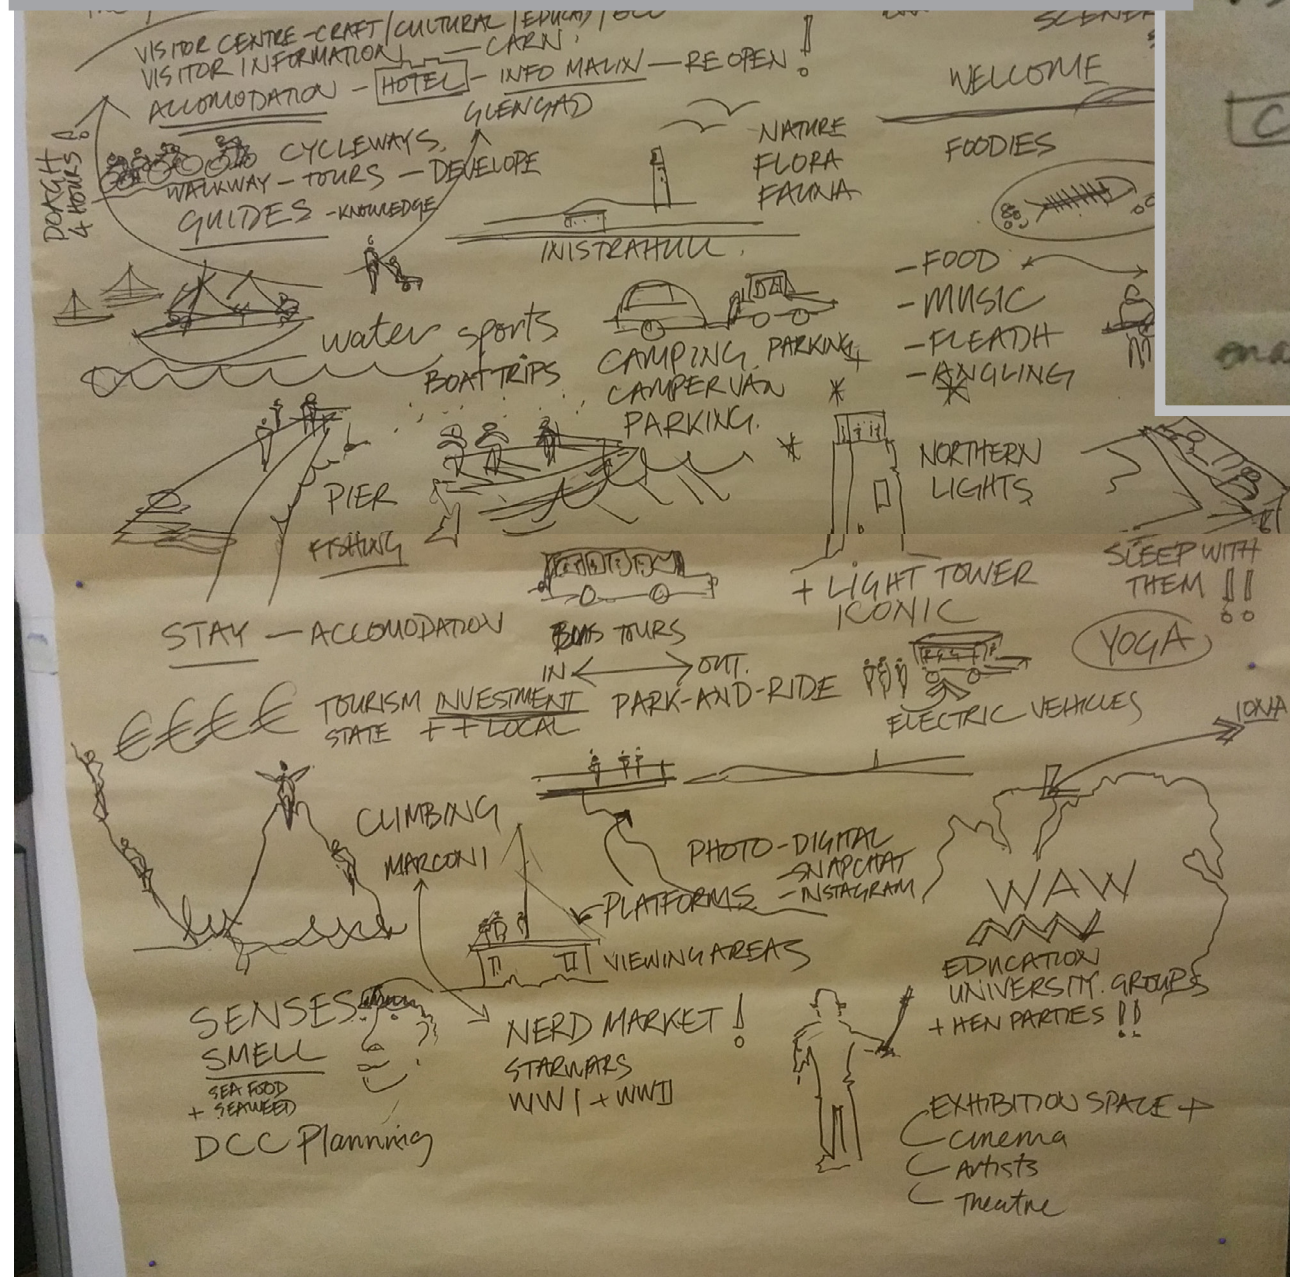 VISITOR CENTRE-CRAFT/CULTURAL/EDUCAT/
VISITOR INFORMATION — CARN.
ACCOMODATION - HOTEL - INFO MALIN — RE OPEN !
GLENGAD
SCENE
WELCOME
FOODIES
DOAGH
4 HOURS !
CYCLEWAYS.
WALKWAY - TOURS - DEVELOPE
GUIDES - KNOWLEDGE
NATURE
FLORA
FAUNA
INISTRAHULL.
- FOOD
- MUSIC
- FLEADH
- ANGLING
water sports
BOAT TRIPS
CAMPING PARKING
CAMPERVAN
PARKING.
PIER
FISHING
NORTHERN
LIGHTS
+ LIGHT TOWER
ICONIC
SLEEP WITH
THEM !!
YOGA
STAY — ACCOMODATION
BUS TOURS
IN OUT.
PARK-AND-RIDE
ELECTRIC VEHICLES
€€€€ TOURISM INVESTMENT
STATE + + LOCAL
IONA
CLIMBING
MARCONI
PHOTO-DIGITAL
-SNAPCHAT
-INSTAGRAM
PLATFORMS
VIEWING AREAS
WAW
EDUCATION
UNIVERSITY. GROUPS
+ HEN PARTIES !!
SENSES
SMELL
SEA FOOD
+ SEAWEED
DCC Planning
NERD MARKET !
STARWARS
WW I + WW II
EXHIBITION SPACE +
cinema
Artists
Theatre